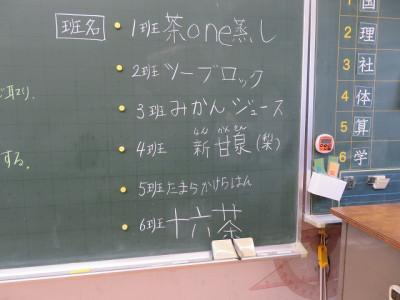 班名
・1班 茶one蒸し
・2班 ツーブロック
・3班 みかんジュース
しん かんせん
・4班 新甘泉(梨)
・5班 たまらかけらはん
・6班 十六茶
する。
1 国
2 理
3 社
4 体
5 算
6 学